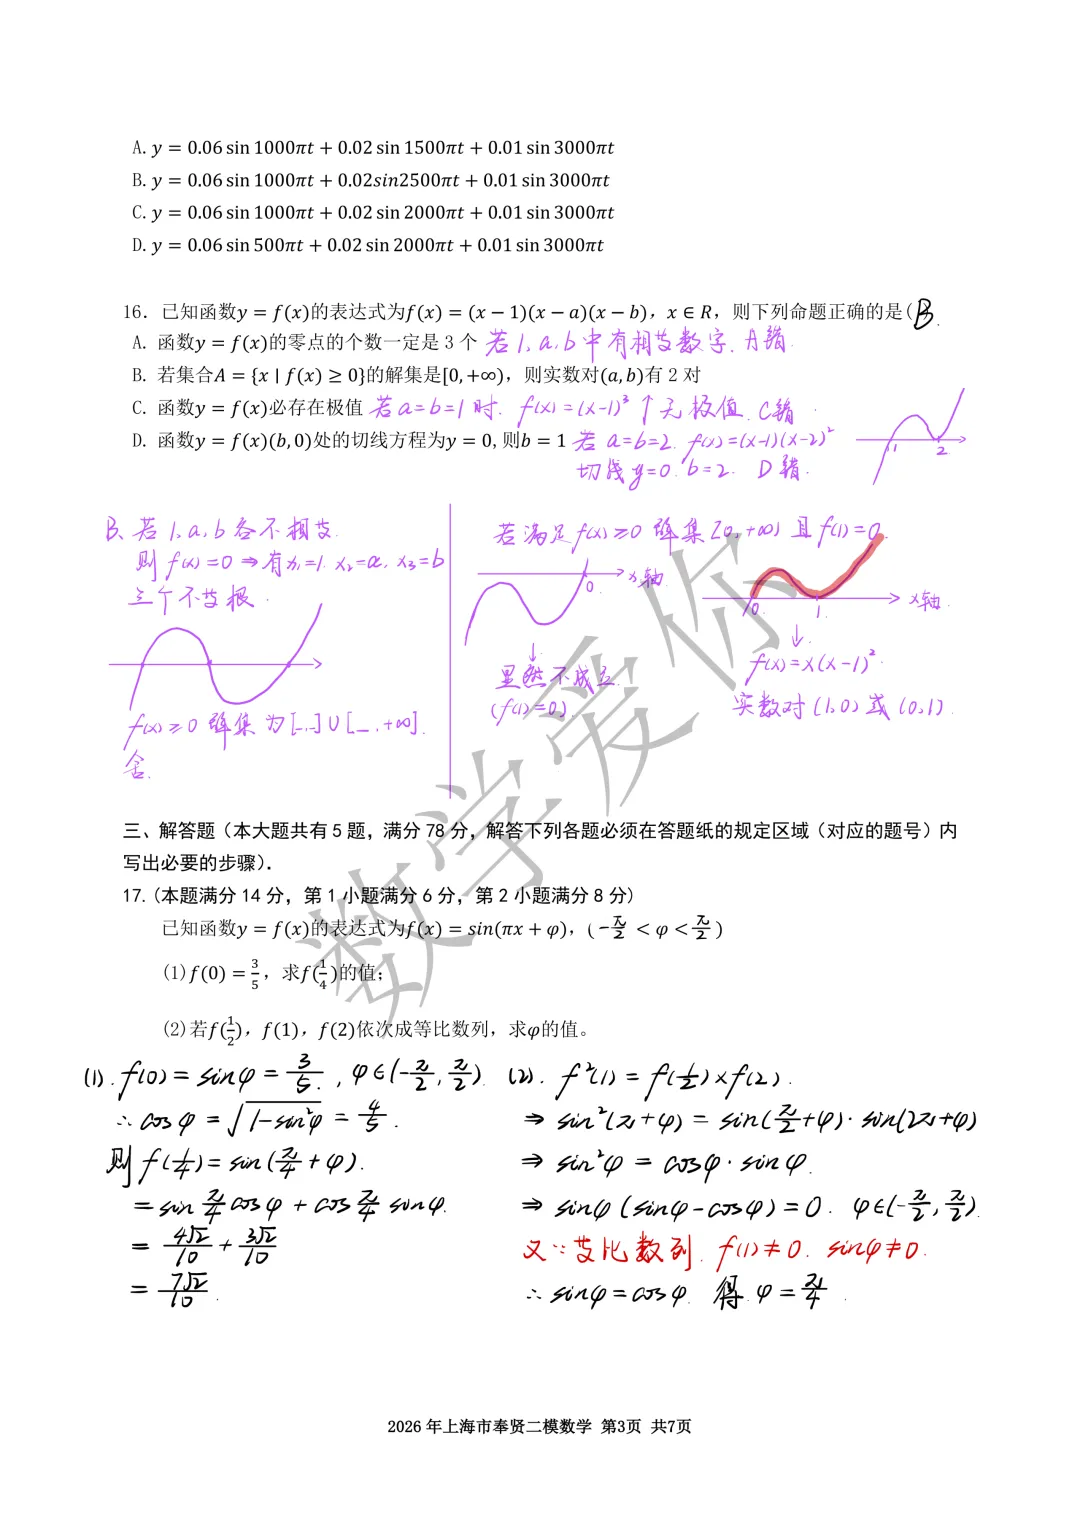 A. y = 0.06 sin 1000πt + 0.02 sin 1500πt + 0.01 sin 3000πt
B. y = 0.06 sin 1000πt + 0.02sin2500πt + 0.01 sin 3000πt
C. y = 0.06 sin 1000πt + 0.02 sin 2000πt + 0.01 sin 3000πt
D. y = 0.06 sin 500πt + 0.02 sin 2000πt + 0.01 sin 3000πt
16. 已知函数y = f(x)的表达式为f(x) = (x − 1)(x − a)(x − b), x ∈ R, 则下列命题正确的是( B.
A. 函数y = f(x)的零点的个数一定是 3 个 若1,a,b中有相等数字.A错.
B. 若集合A = {x | f(x) ≥ 0}的解集是[0, +∞), 则实数对(a, b)有 2 对
C. 函数y = f(x)必存在极值 若a=b=1时. f(x)=(x-1)³↑无极值.C错.
D. 函数y = f(x)(b, 0)处的切线方程为y = 0, 则b = 1 若 a=b=2. f(x)=(x-1)(x-2)²
切线y=0. b=2. D错.
1 2
B、若1,a,b各不相等.
则f(x)=0⇒有x₁=1. x₂=a, x₃=b
三个不等根.
f(x)≥0解集为[-,-]∪[_,+∞].
舍.
若满足f(x)≥0解集[0,+∞)且f(1)=0.
0 x轴
↓
显然不成立.
(f(1)=0)
0. 1. x轴.
↓
f(x)=x(x-1)².
实数对(1,0)或(0,1).
数学爱你
三、解答题（本大题共有 5 题，满分 78 分，解答下列各题必须在答题纸的规定区域（对应的题号）内
写出必要的步骤）.
17. (本题满分 14 分，第 1 小题满分 6 分，第 2 小题满分 8 分)
已知函数y = f(x)的表达式为f(x) = sin(πx + φ), (−π/2 < φ < π/2)
(1)f(0) = 3/5, 求f(1/4)的值;
(2)若f(1/2), f(1), f(2)依次成等比数列, 求φ的值。
(1). f(0)=sinφ=3/5., φ∈(-π/2,π/2).
∴cosφ=√1-sin²φ=4/5.
则f(1/4)=sin(π/4+φ).
=sinπ/4cosφ+cosπ/4sinφ.
=4√2/10+3√2/10
=7√2/10.
(2). f²(1)=f(1/2)×f(2).
⇒sin²(π+φ)=sin(π/2+φ)·sin(2π+φ)
⇒sin²φ=cosφ·sinφ.
⇒sinφ(sinφ-cosφ)=0. φ∈(-π/2,π/2).
又∵等比数列.f(1)≠0. sinφ≠0.
∴sinφ=cosφ. 得.φ=π/4.
2026 年上海市奉贤二模数学 第3页 共7页